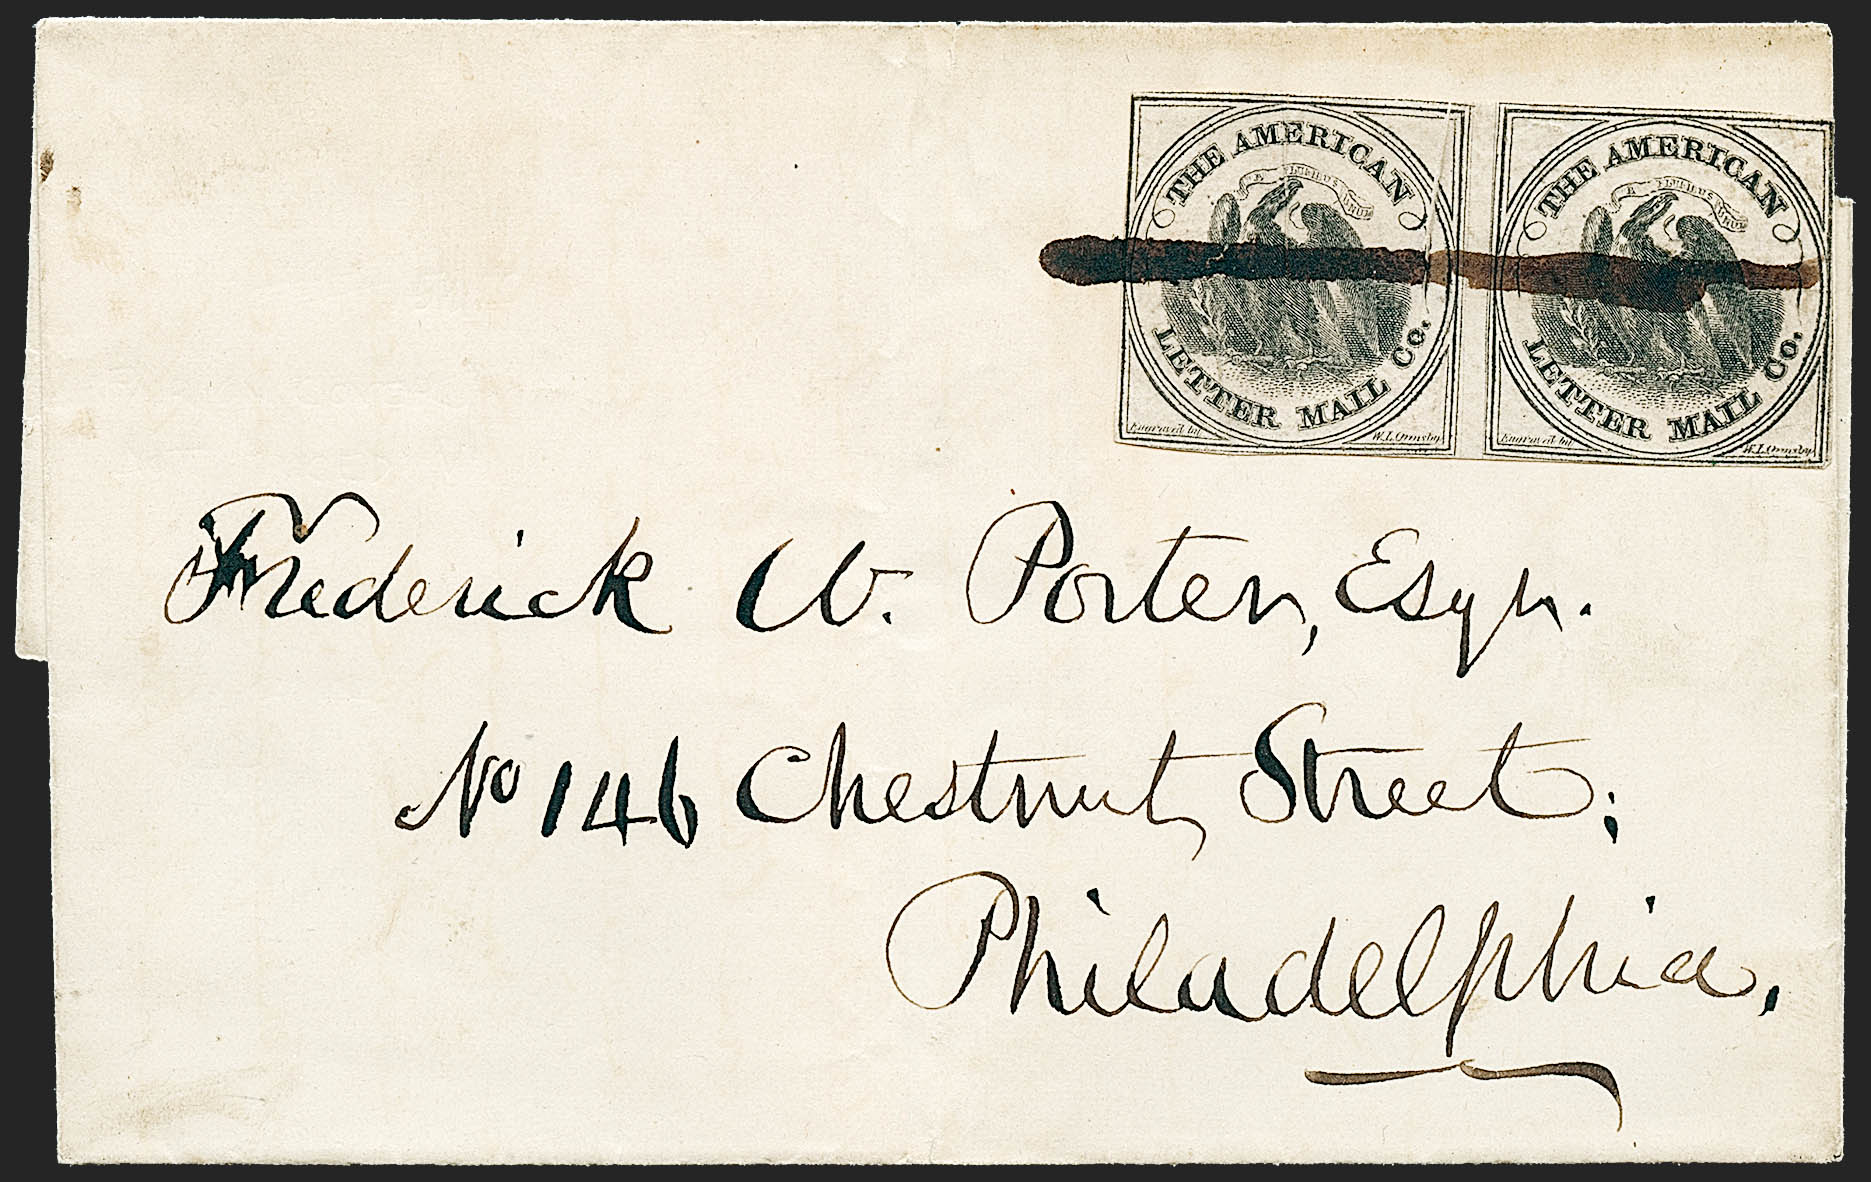 THE AMERICAN
E PLURIBUS UNUM
LETTER MAIL Co.
Engraved by W.L. Ormsby
THE AMERICAN
E PLURIBUS UNUM
LETTER MAIL Co.
Engraved by W.L. Ormsby
Frederick W. Porter, Esqr.
No 146 Chestnut Street;
Philadelphia.